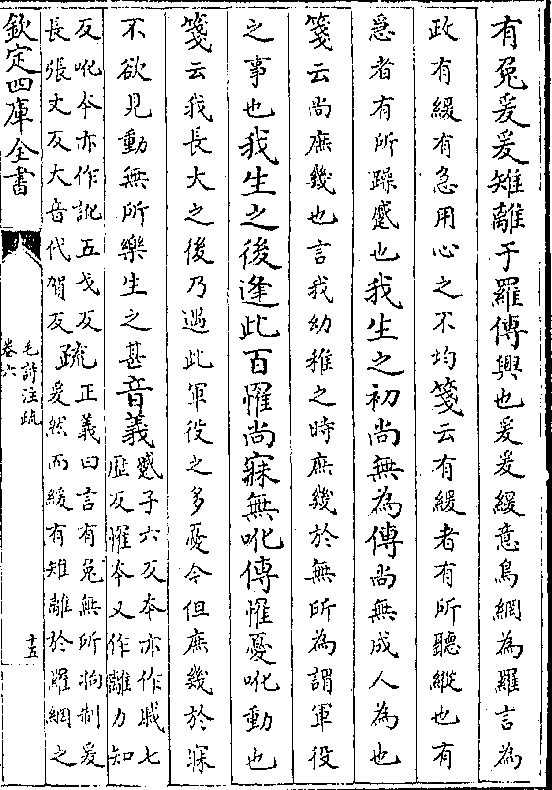 有兔爰爰雉離于羅傳興也爰爰緩意鳥網為羅言為
政有緩有急用心之不均箋云有緩者有所聽縱也有
急者有所躁蹙也我生之初尚無為傳尚無成人為也
箋云尚庶幾也言我幼稚之時庶幾於無所為謂軍役
之事也我生之後逢此百罹尚寐無吪傳罹憂吪動也
箋云我長大之後乃遇此軍役之多憂今但庶幾於寐
不欲見動無所樂生之甚音義蹙子六反本亦作戚七
歴反罹本又作離力知
反吪本亦作訛五戈反
長張丈反大音代賀反疏正義曰言有兔無所拘制爰
爰然而緩有雉離於羅網之
欽定四庫全書
毛詩注疏
卷六
十五